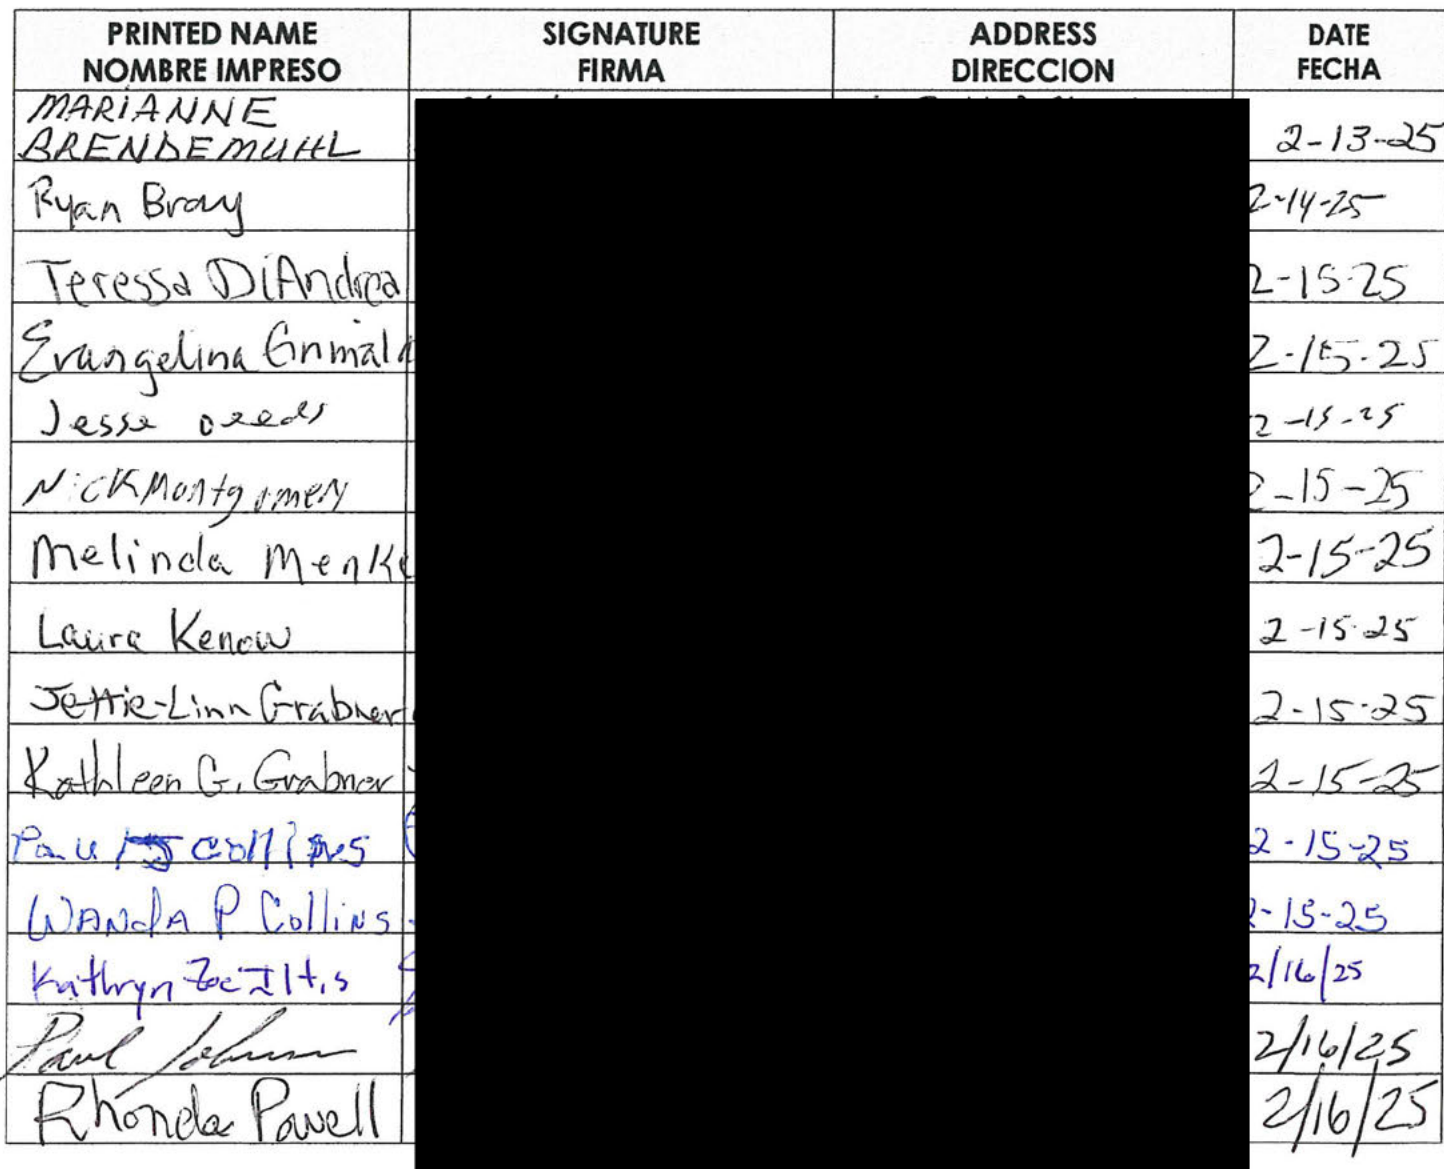 PRINTED NAME SIGNATURE ADDRESS DATE
NOMBRE IMPRESO FIRMA DIRECCION FECHA
MARIANNE
BRENDEMUHL 2-13-25
Ryan Bray 2-14-25
Teressa DiAndrea 2-15-25
Evangelina Grimal 2-15-25
Jesse Deeds 2-15-25
Nick Montgomery 2-15-25
Melinda Menke 2-15-25
Laura Kenow 2-15-25
Jettie-Linn Grabner 2-15-25
Kathleen G. Grabner 2-15-25
Paul Collins 2-15-25
WANdA P Collins 2-15-25
Kathryn Zoe Iltis 2/16/25
Paul Johnson 2/16/25
Rhonda Powell 2/16/25